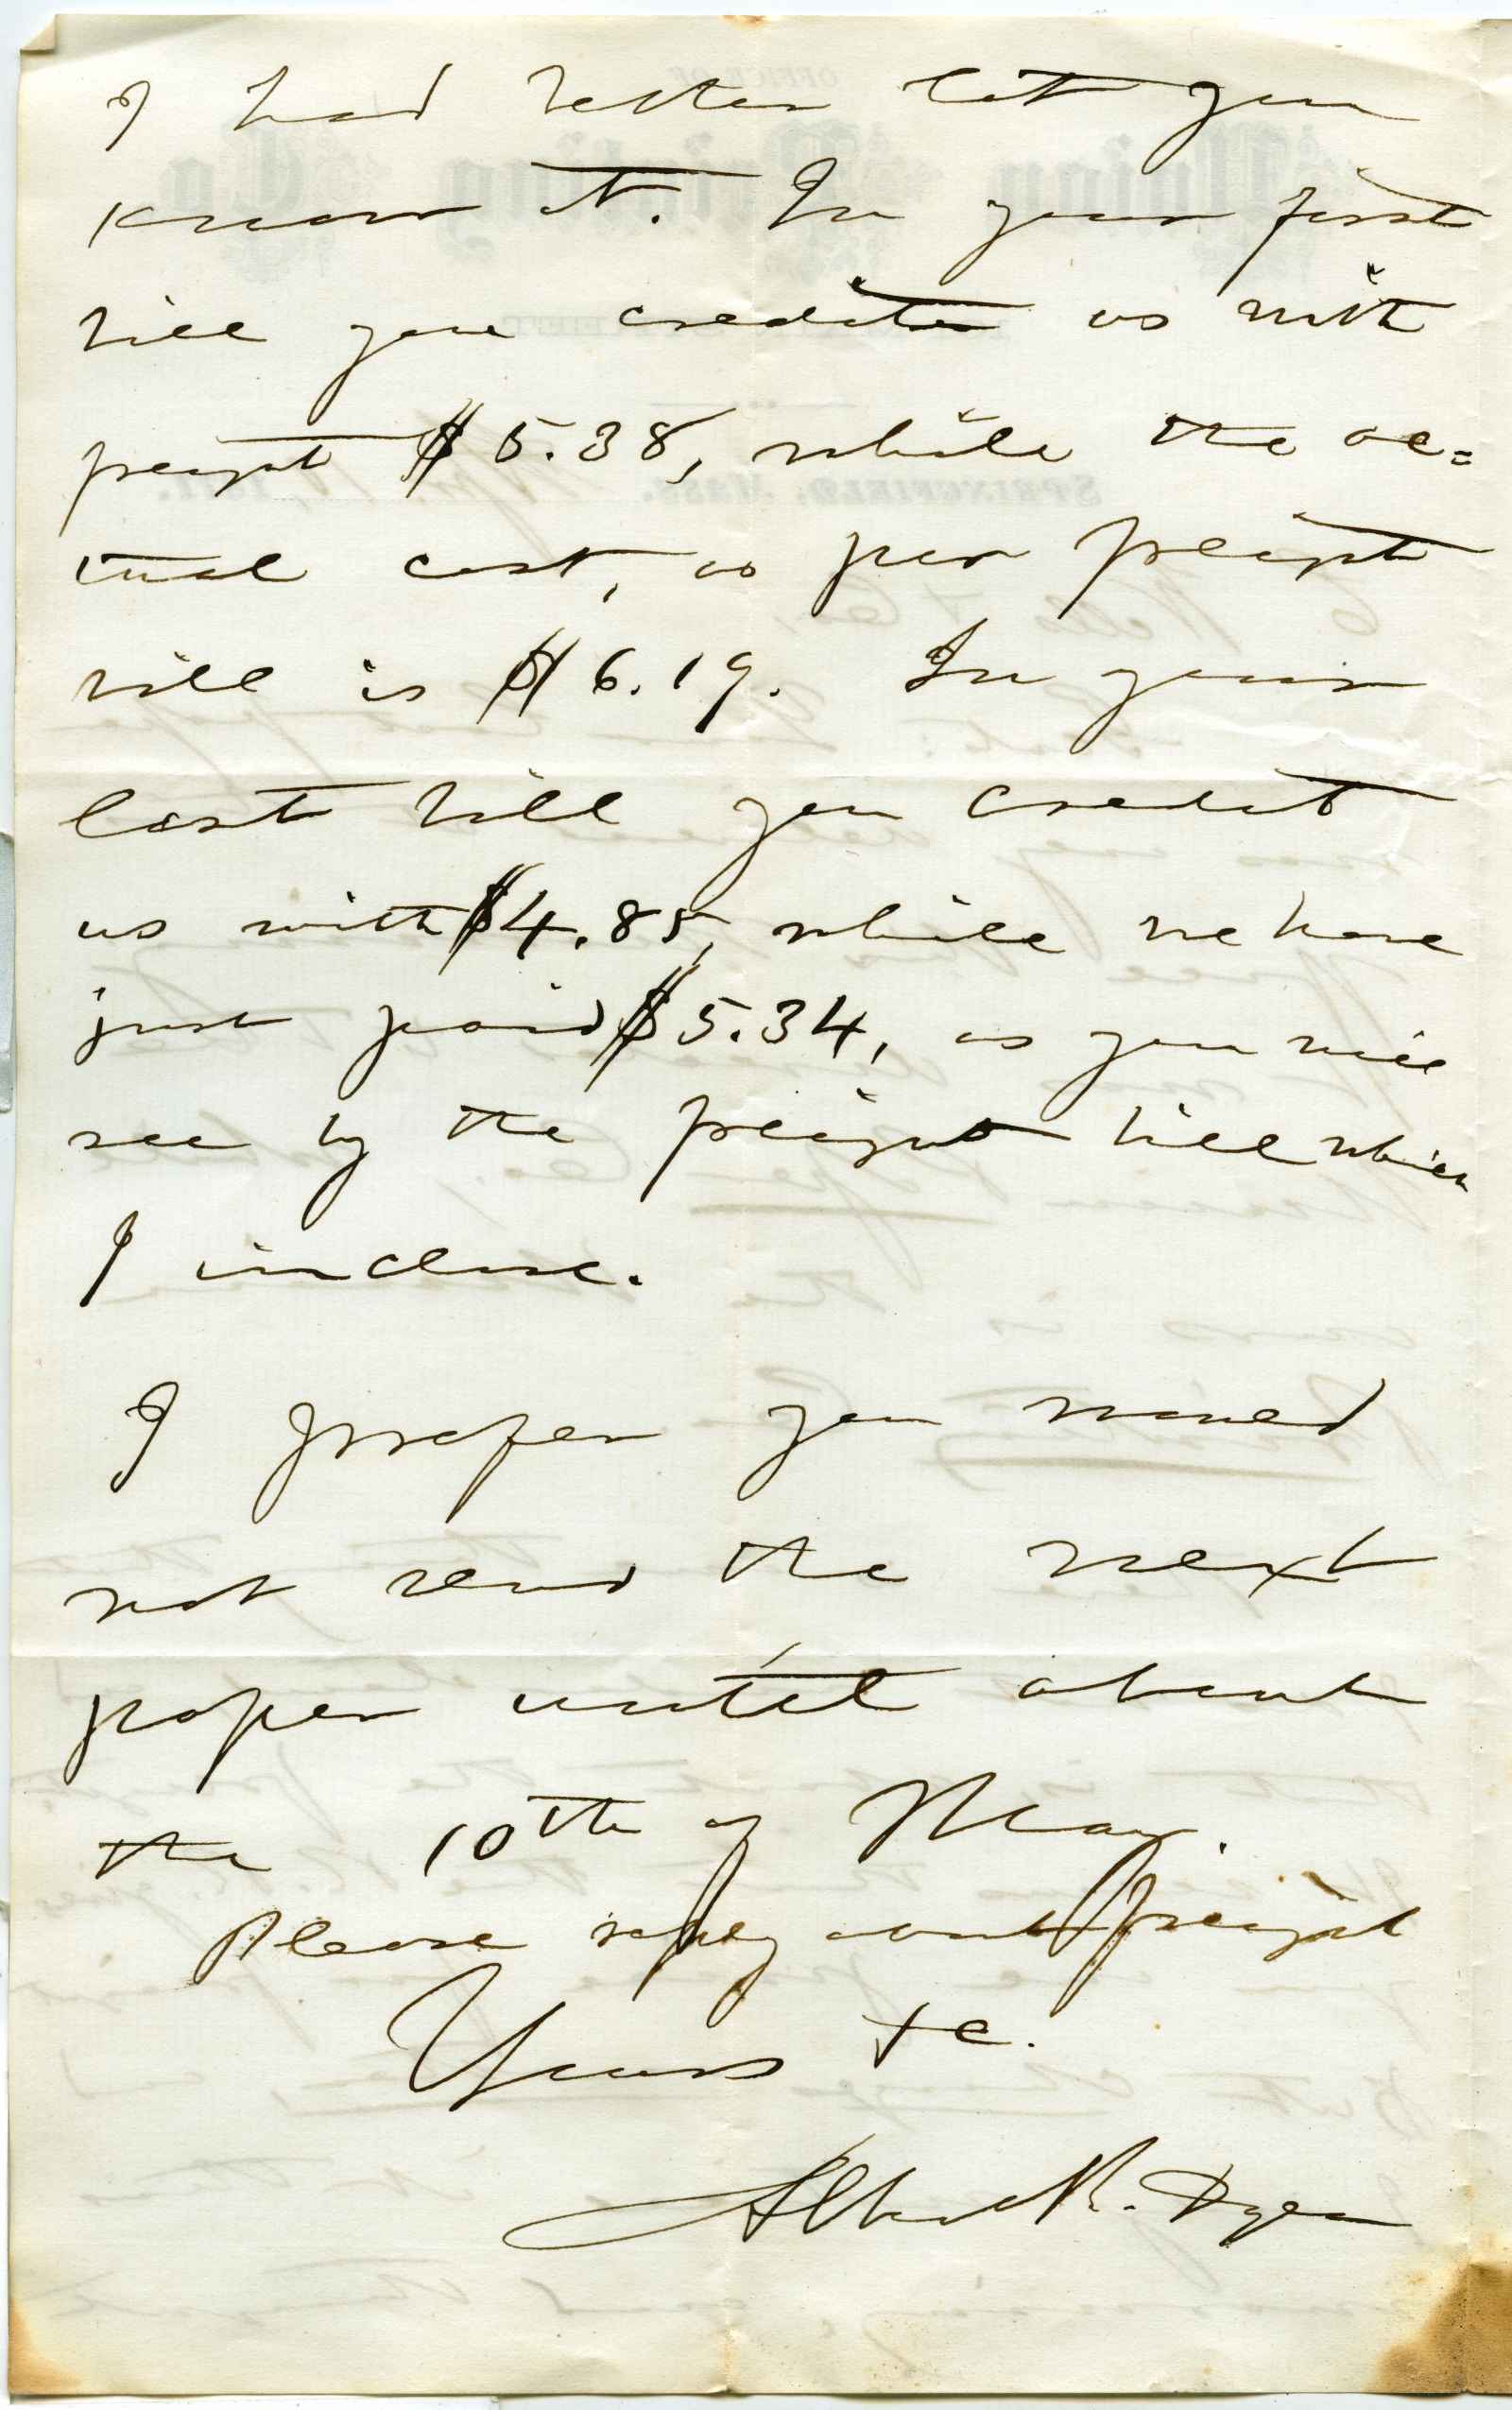 I had better let you
know it. In your first
bill you credited us with
freight $5.38, while the ac=
tual cost, as per freight
bill is $6.19. In your
last bill you credit
us with $4.85, while we have
just paid $5.34, as you will
see by the freight bill which
I inclose.
I prefer you would
not send the next
paper until about
the 10th of May.
Please reply about freight
Yours &c.
Albert R. Dyer